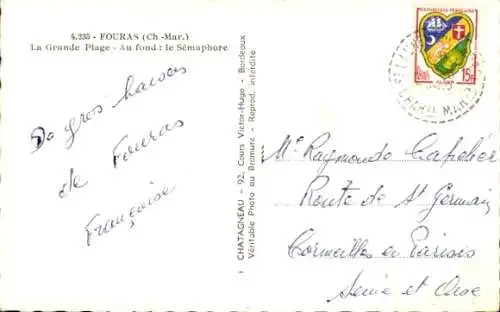 4.235 - FOURAS (Ch.-Mar.)
La Grande Plage - Au fond : le Sémaphore
De gros baisers
de Fouras
Françoise
CHATAGNEAU - 92, Cours Victor-Hugo - Bordeaux
Véritable Photo au Bromure - Reprod. interdite
REPUBLIQUE FRANÇAISE
15F
ALGER
Raymonde
Route de St Germain
Cormeilles en Parisis
Seine et Oise